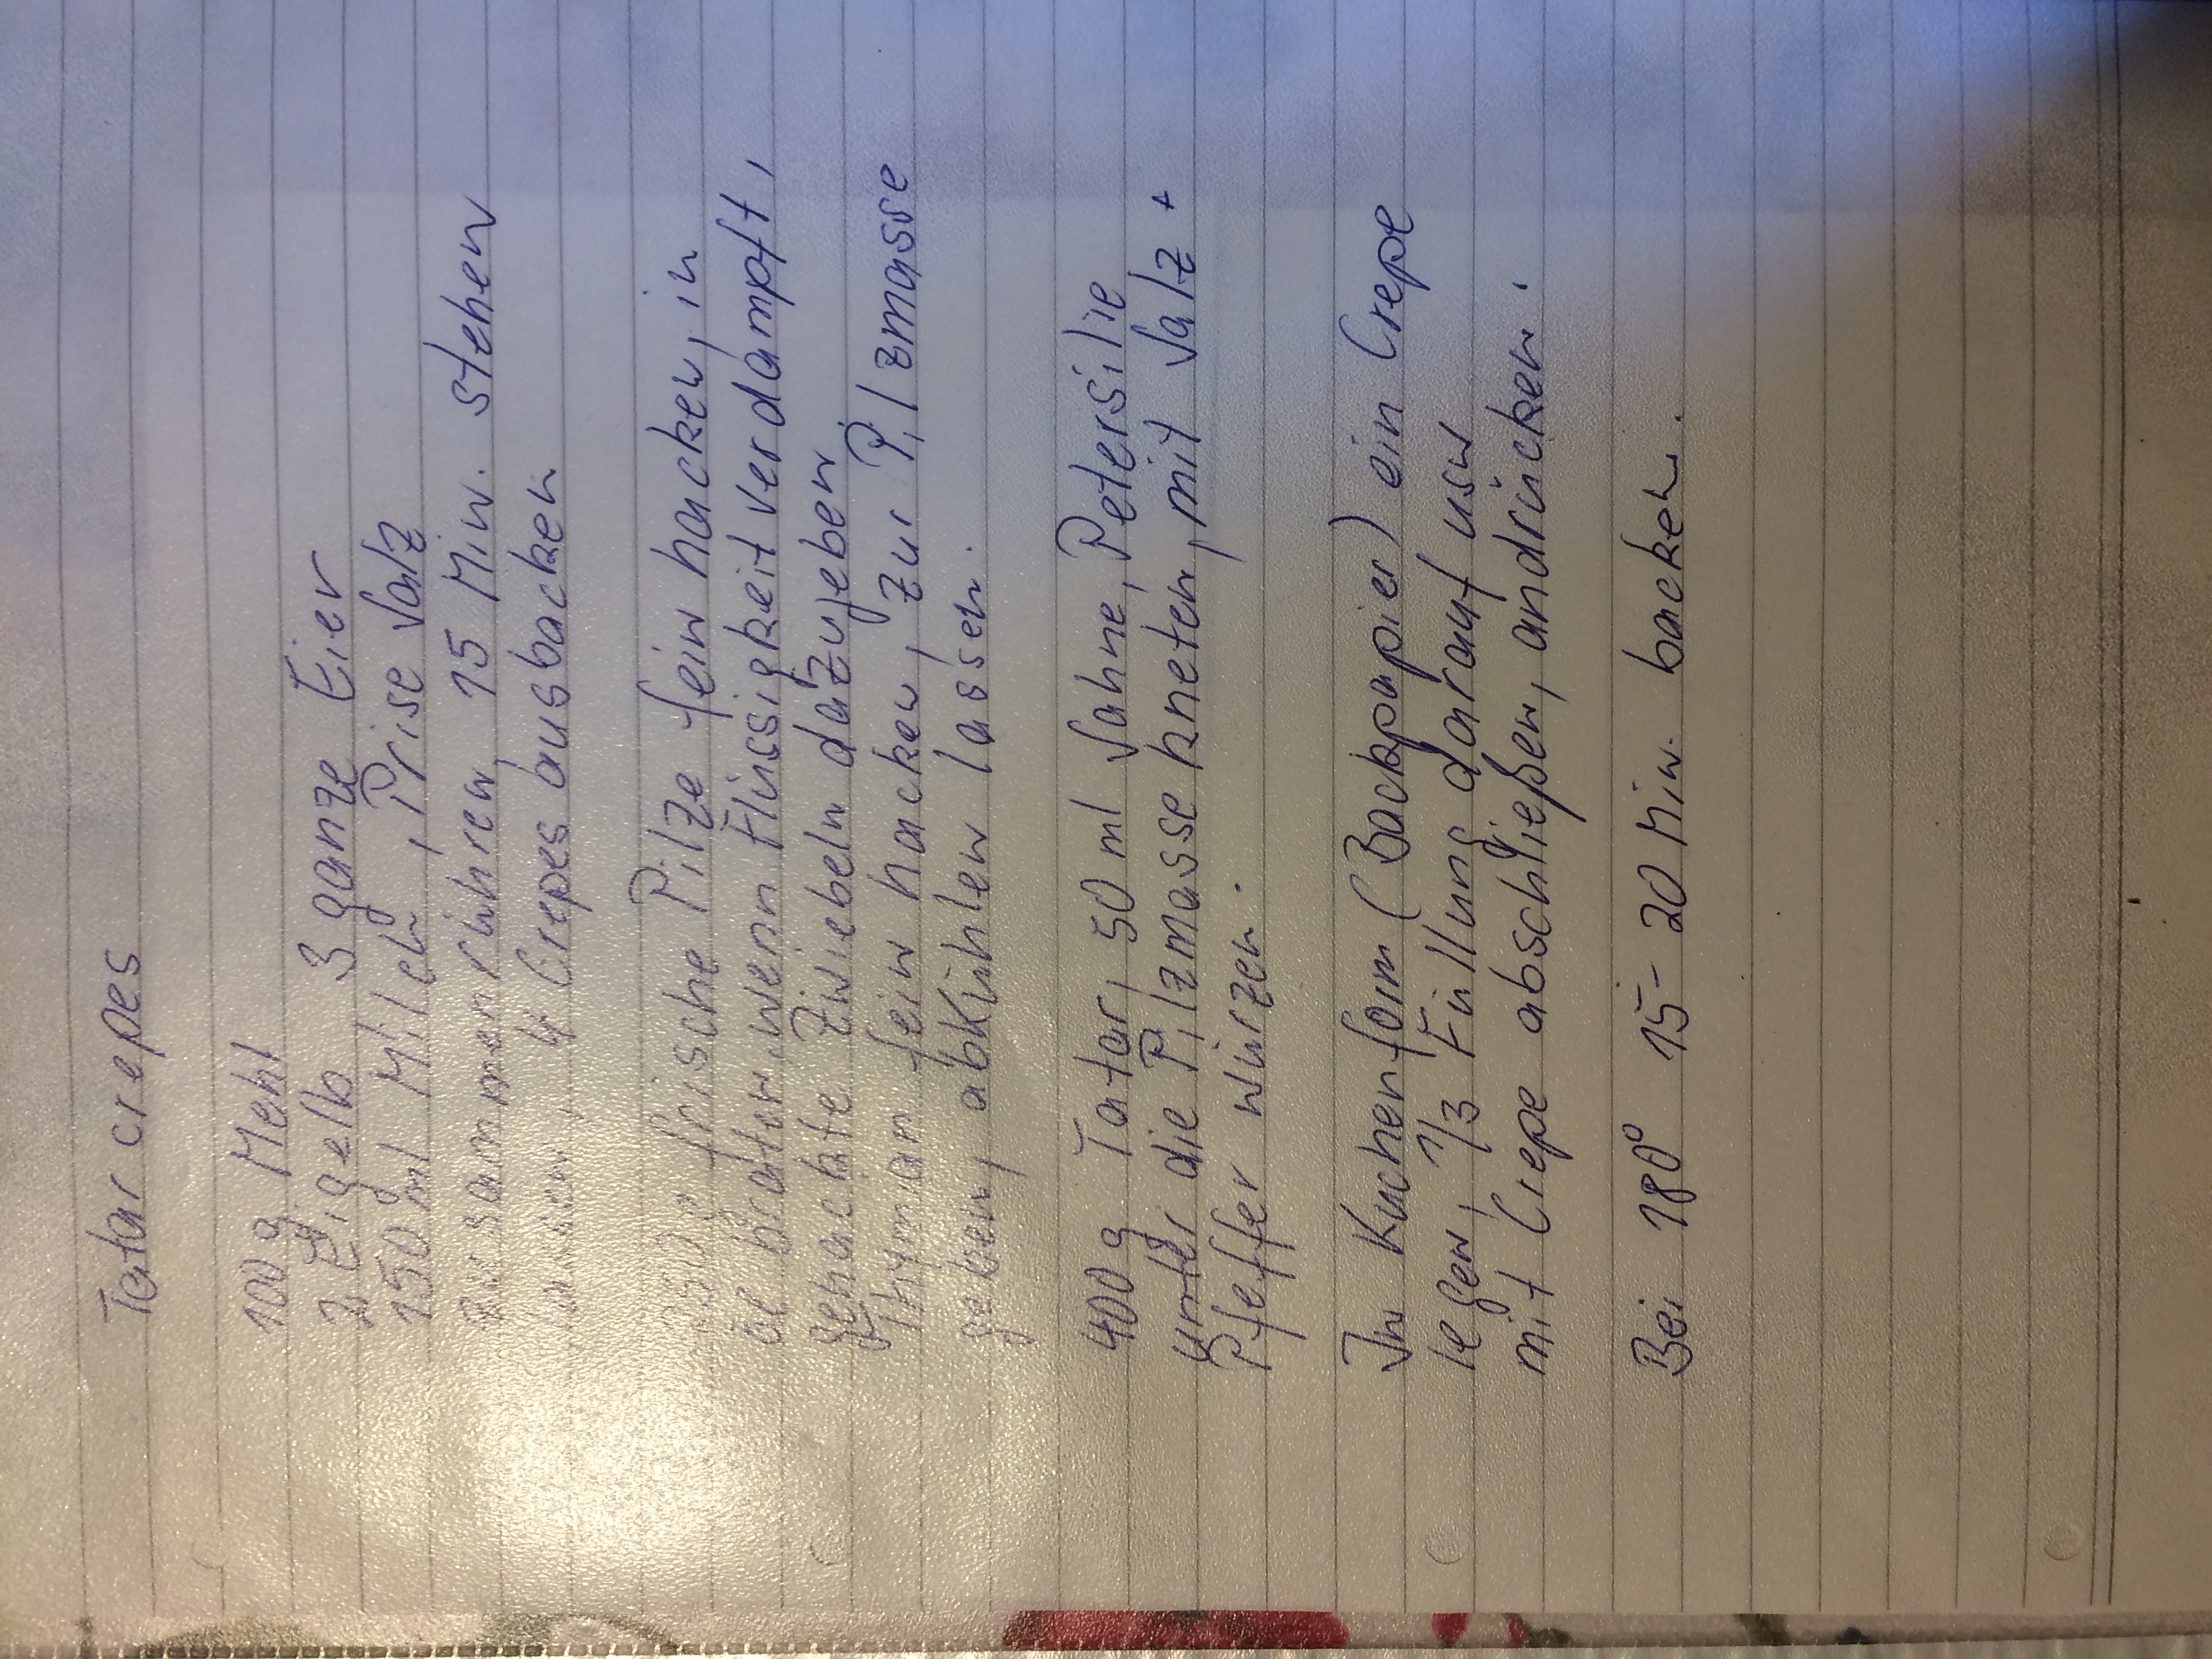 Tatar crepes
100 g Mehl
2 Eigelb 3 ganze Eier
150 ml Milch, Prise Salz
zusammenrühren 15 Min. stehen
lassen, 4 Crepes ausbacken
frische Pilze fein hacken, in
Öl braten, wenn Flüssigkeit verdampft,
gehackte Zwiebeln dazugeben
Thymian fein hacken, zur Pilzmasse
geben, abkühlen lassen.
400 g Tatar, 50 ml Sahne, Petersilie
unter die Pilzmasse kneten, mit Salz +
Pfeffer würzen.
In Kuchenform (Backpapier) ein Crepe
legen, 1/3 Füllung darauf usw
mit Crepe abschließen, andrücken.
Bei 180° 15-20 Min. backen.